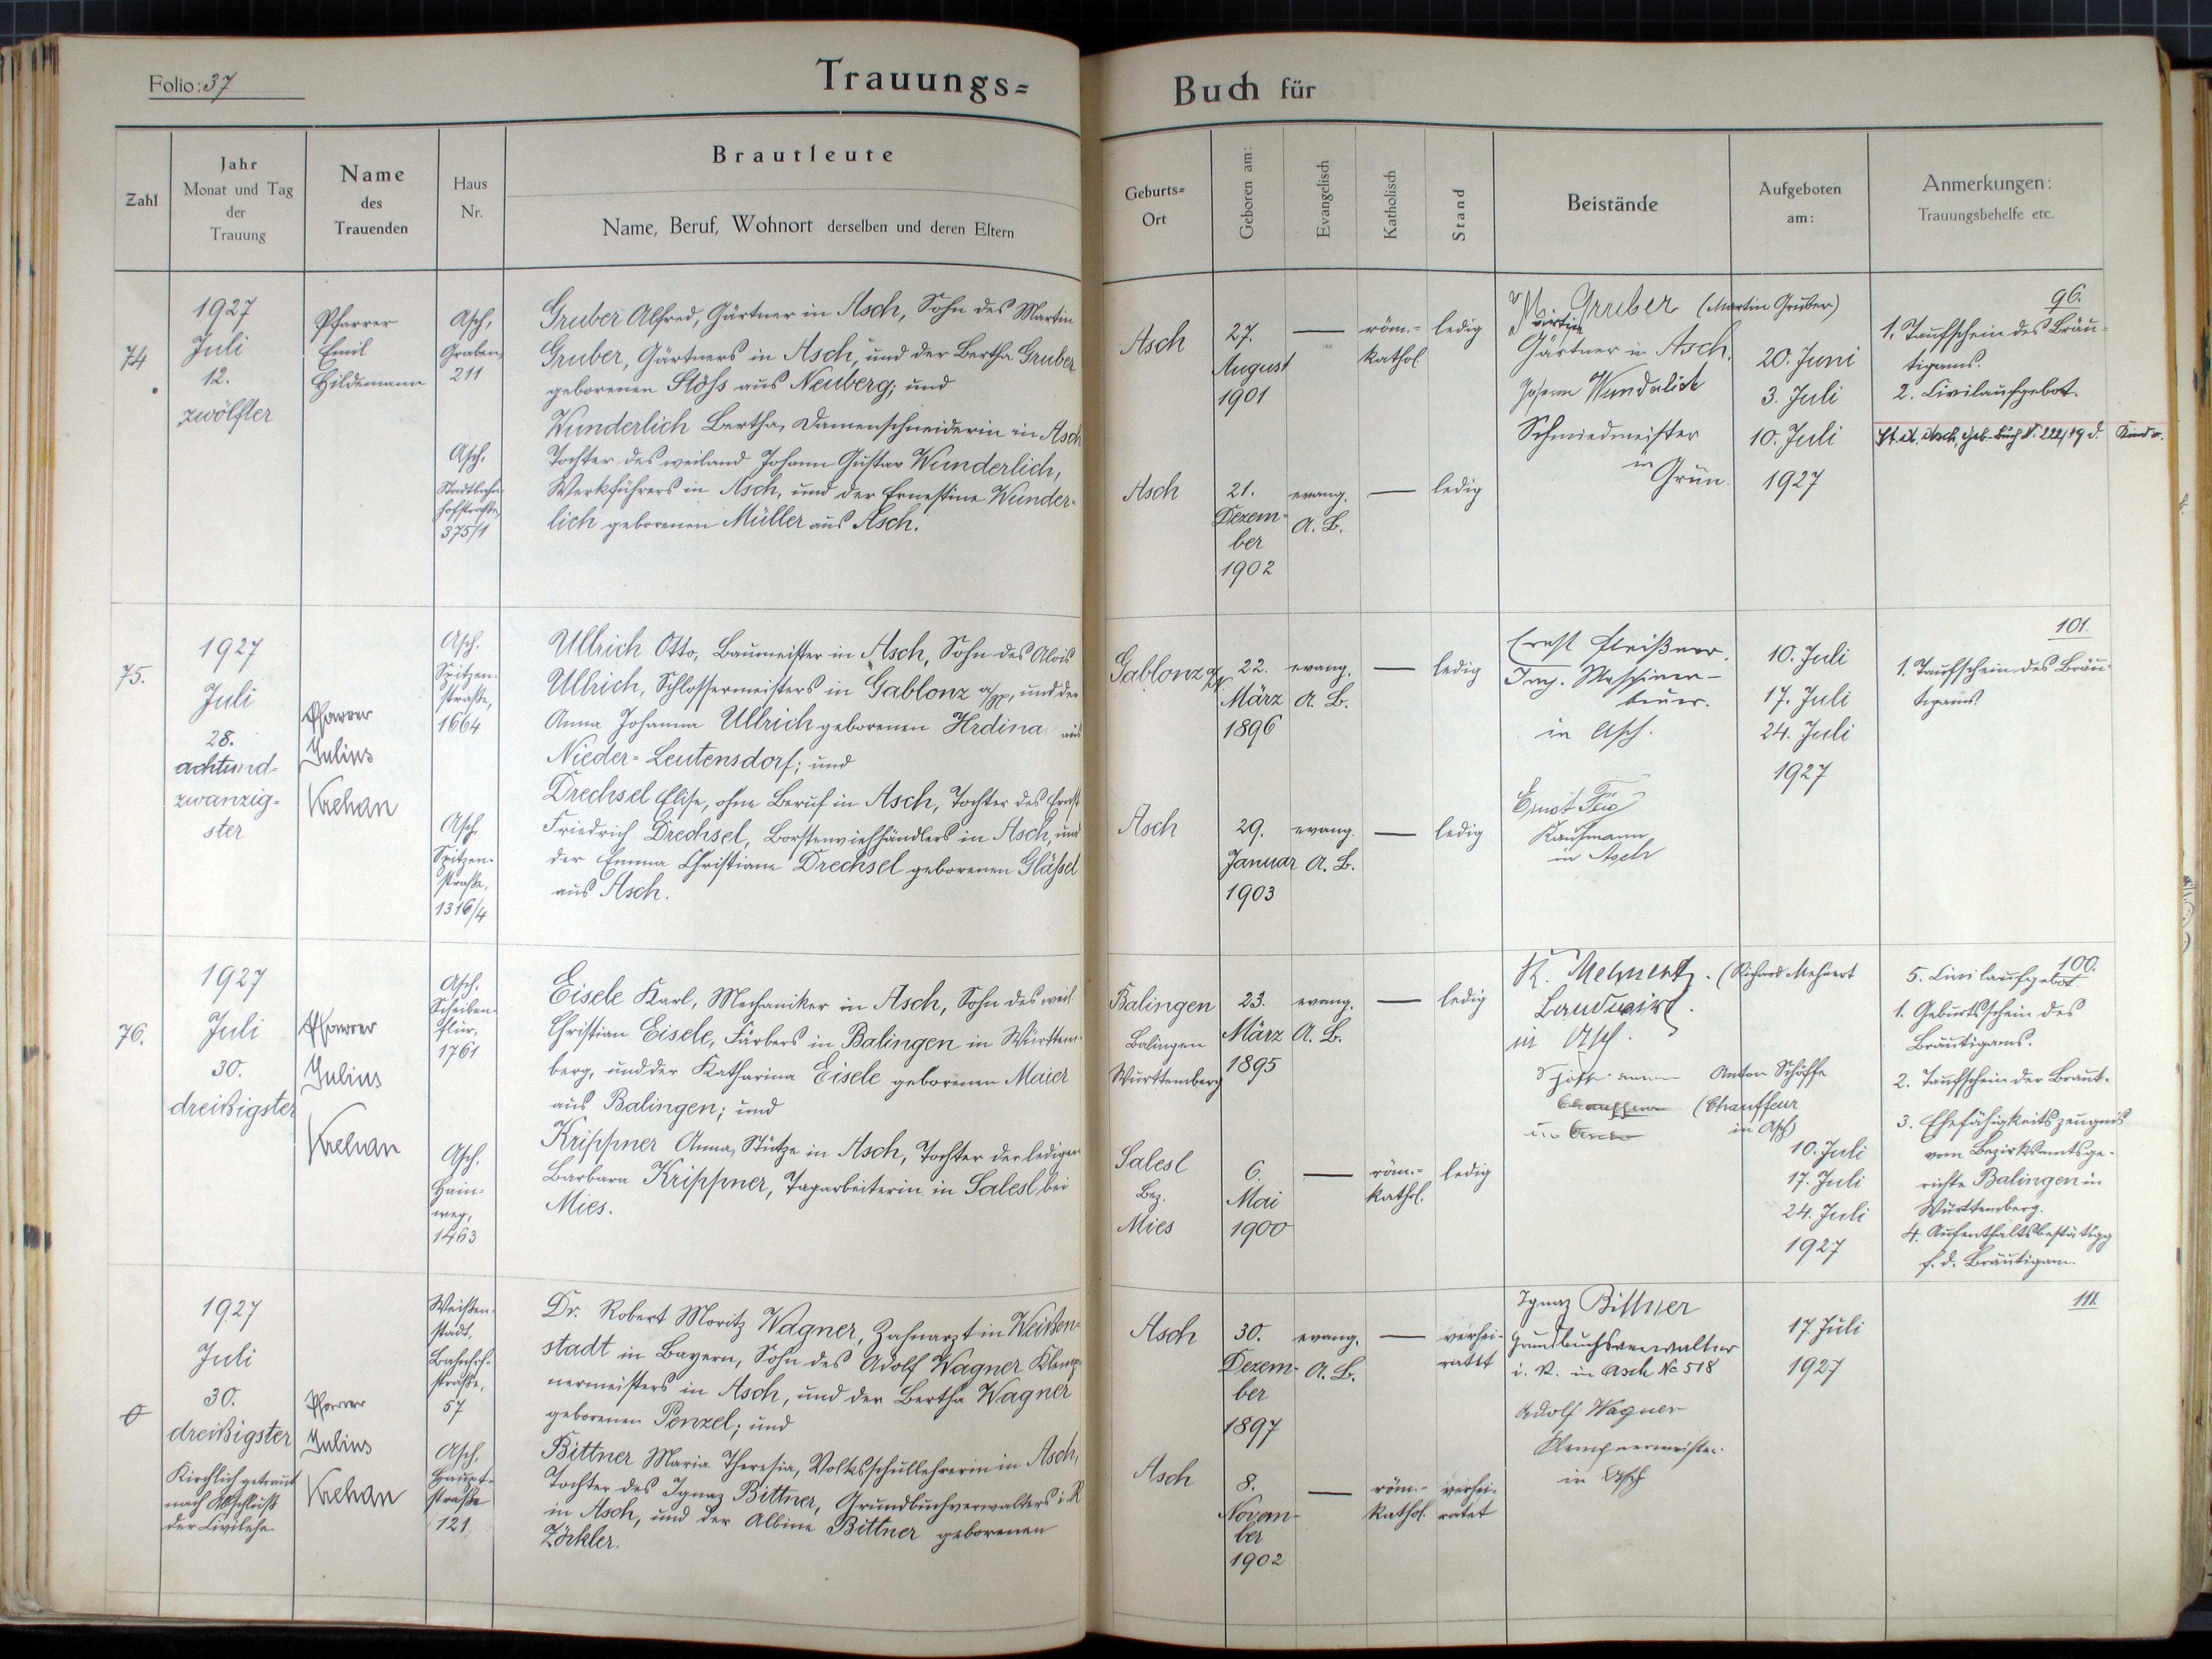 Folio: 37
Trauungs=
Buch für
Zahl
Jahr
Monat und Tag
der
Trauung
Name
des
Trauenden
Haus
Nr.
Brautleute
Name, Beruf, Wohnort derselben und deren Eltern
Geburts=
Ort
Geboren am:
Evangelisch
Katholisch
Stand
Beistände
Aufgeboten
am:
Anmerkungen:
Trauungsbehelfe etc.
74
1927
Juli
12.
zwölfter
Pfarrer
Emil
Hildemann
Asch,
Graben,
211
Gruber Alfred, Gärtner in Asch, Sohn des Martin
Gruber, Gärtners in Asch, und der Bertha Gruber
geborenen Stöß aus Neuberg; und
Asch,
Stadtbahn-
hofstraße,
375/1
Wunderlich Bertha, Damenschneiderin in Asch
Tochter des weiland Johann Gustav Wunderlich,
Werkführers in Asch, und der Ernestine Wunder-
lich geborenen Müller aus Asch.
Asch
27.
August
1901
—
röm.-
kathol.
ledig
Asch
21.
Dezem-
ber
1902
evang.
A. B.
—
ledig
M. Gruber (Martin Gruber)
Gärtner in Asch.
Wunderlich
Schmiedmeister
in
Grün.
20. Juni
3. Juli
10. Juli
1927
96.
1. Taufschein des Bräu-
tigams.
2. Civilaufgebot.
St. A. Asch, Geb.-Buch N. 222/19 d. Kind
75.
1927
Juli
28.
achtund-
zwanzig-
ster
Pfarrer
Julius
Krehan
Asch.
Spitzen-
straße,
1664
Ullrich Otto, Baumeister in Asch, Sohn des Alois
Ullrich, Schlossermeisters in Gablonz a/N, und der
Anna Johanna Ullrich geborenen Hrdina aus
Nieder-Leutensdorf; und
Asch,
Spitzen-
straße,
1316/4
Drechsel Elise, ohne Beruf in Asch, Tochter des Ernst
Friedrich Drechsel, Borstenviehhändlers in Asch, und
der Emma Christiane Drechsel geborenen Gläßel
aus Asch.
Gablonz a/N
22.
März
1896
evang.
A. B.
—
ledig
Asch
29.
Januar
1903
evang.
A. B.
—
ledig
Ernst Fleißner.
in Asch.
Ernst
Kaufmann
in Asch
10. Juli
17. Juli
24. Juli
1927
101.
1. Taufschein des Bräu-
tigams.
76.
1927
Juli
30.
dreißigster
Pfarrer
Julius
Krehan
Asch.
Scheiben-
flur,
1761
Eisele Karl, Mechaniker in Asch, Sohn des weil.
Christian Eisele, Färbers in Balingen in Württem-
berg, und der Katharina Eisele geborenen Maier
aus Balingen; und
Asch,
Hain-
weg,
1463
Krippner Anna, Stütze in Asch, Tochter der ledigen
Barbara Krippner, Tagarbeiterin in Salesl bei
Mies.
Balingen
Balingen
Württemberg
23.
März
1895
evang.
A. B.
—
ledig
Salesl
Bez.
Mies
6.
Mai
1900
—
röm.-
kathol.
ledig
R. Mehnert. (Richard Mehnert
Landwirt
in Asch.
Anton Schöffe
Chauffeur (Chauffeur
in Asch)
10. Juli
17. Juli
24. Juli
1927
100.
5. Civilaufgebot.
1. Geburtsschein des
Bräutigams.
2. Taufschein der Braut.
3. Ehefähigkeitszeugnis
vom Bezirksamtsge-
richte Balingen in
Württemberg.
4. Aufenthaltsbestätigg
f. d. Bräutigam.
0
1927
Juli
30.
dreißigster
Kirchlich getraut
nach Abschluß
der Civilehe
Pfarrer
Julius
Krehan
Weißen-
stadt,
Bahnhof-
straße,
57
Dr. Robert Moritz Wagner, Zahnarzt in Weißen-
stadt in Bayern, Sohn des Adolf Wagner Klemp-
nermeisters in Asch, und der Bertha Wagner
geborenen Penzel; und
Asch,
Haupt-
straße
121
Bittner Maria Theresia, Volksschullehrerin in Asch,
Tochter des Ignaz Bittner, Grundbuchverwalters i. R.
in Asch, und der Albine Bittner geborenen
Zörkler.
Asch
30.
Dezem-
ber
1897
evang.
A. B.
—
verhei-
ratet
Asch
8.
Novem-
ber
1902
—
röm.-
kathol.
verhei-
ratet
Ignaz Bittner
Grundbuchsverwalter
i. R. in Asch No 518
Adolf Wagner
Klempnermeister
in Asch
17. Juli
1927
111.